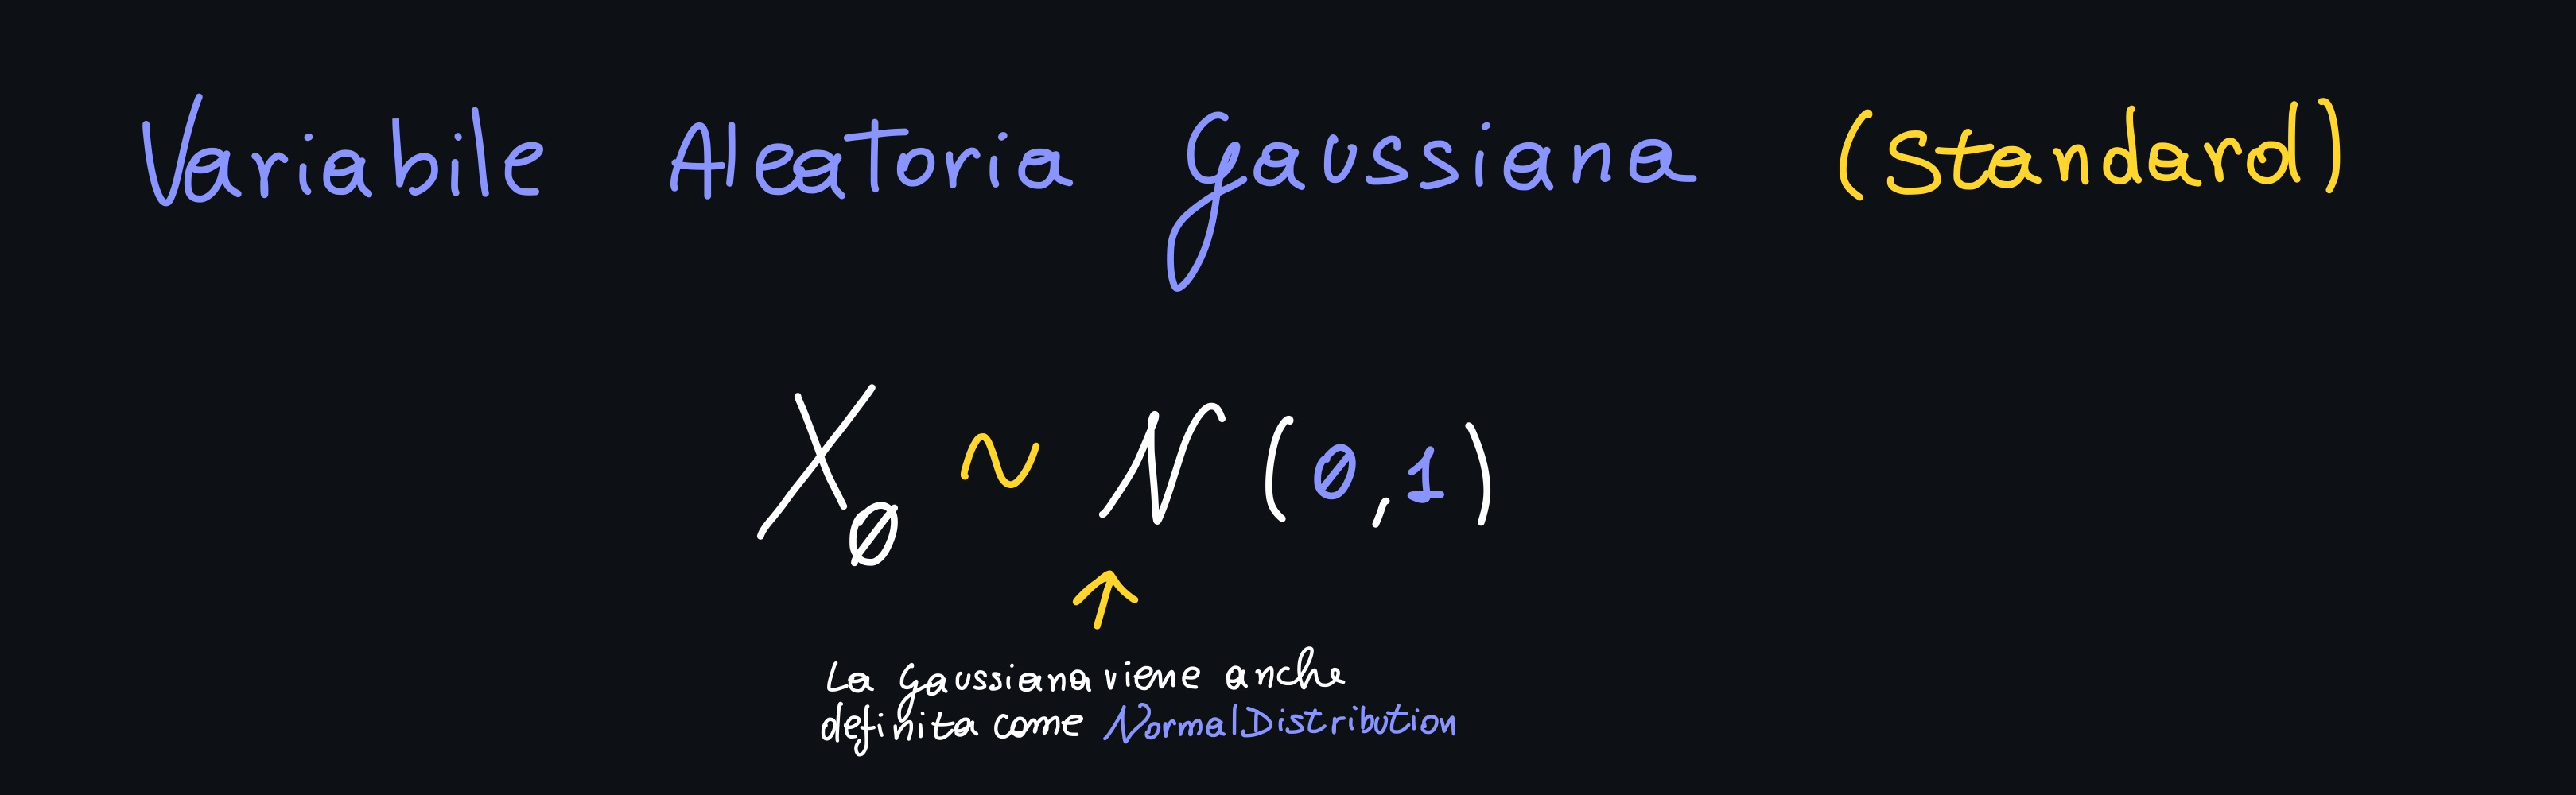 Variabile Aleatoria Gaussiana (Standard)
X₀ ~ N(0,1)
↑
La Gaussiana viene anche
definita come Normal Distribution